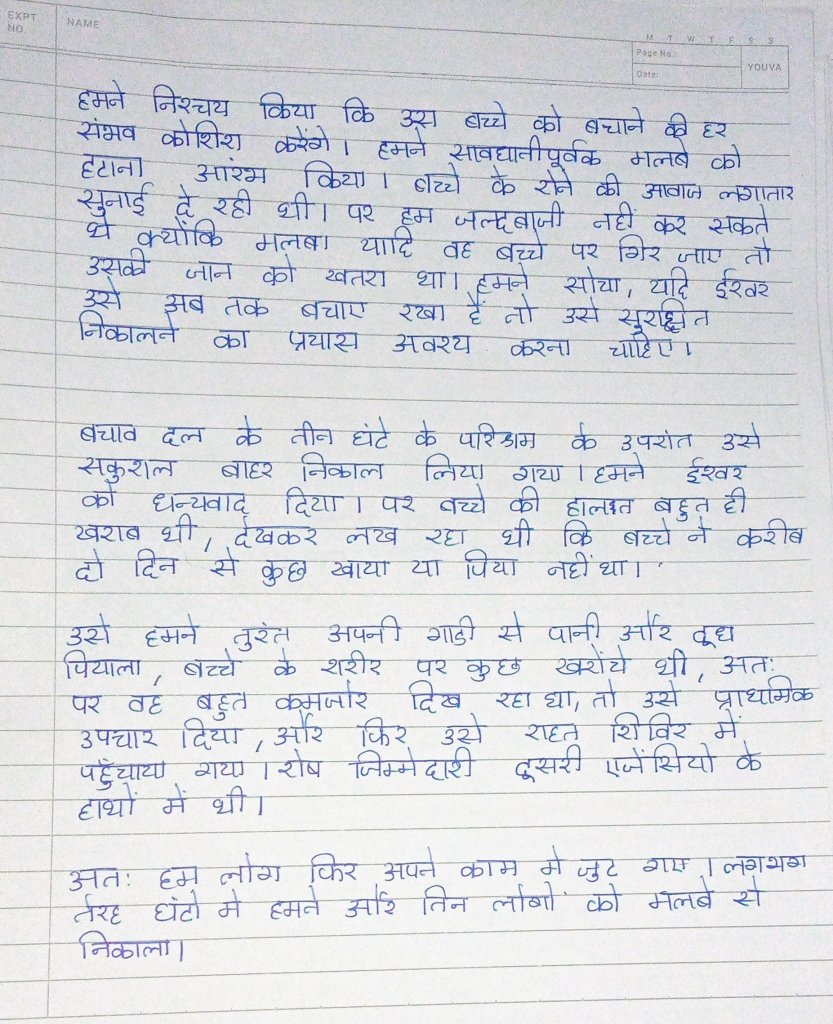 EXPT NO.
NAME
M T W T F S S
Page No.:
Date:
YOUVA
हमने निश्चय किया कि उस बच्चे को बचाने की हर
संभव कोशिश करेंगे। हमने सावधानीपूर्वक मलबे को
हटाना आरंभ किया। बच्चे के रोने की आवाज लगातार
सुनाई दे रही थी। पर हम जल्दबाजी नही कर सकते
थे क्योंकि मलबा यादि वह बच्चे पर गिर जाए तो
उसकी जान को खतरा था। हमने सोचा, यदि ईश्वर
उसे अब तक बचाए रखा हैं तो उसे सुरक्षित
निकालने का प्रयास अवश्य करना चाहिए।
बचाव दल के तीन घंटे के परिश्रम के उपरांत उसे
सकुशल बाहर निकाल लिया गया। हमने ईश्वर
को धन्यवाद दिया। पर बच्चे की हालत बहुत ही
खराब थी, देखकर लख रहा थी कि बच्चे ने करीब
दो दिन से कुछ खाया या पिया नहीं था।
उसे हमने तुरंत अपनी गाडी से पानी और दूध
पियाला, बच्चे के शरीर पर कुछ खरोंचे थी, अतः
पर वह बहुत कमजोर दिख रहा था, तो उसे प्राथमिक
उपचार दिया, और फिर उसे राहत शिविर में
पहुँचाया गया। शेष जिम्मेदारी दूसरी एजेंसियो के
हाथों में थी।
अतः हम लोग फिर अपने काम मे जुट गए। लगभग
तेरह घंटो मे हमने और तिन लोगों को मलबे से
निकाला।